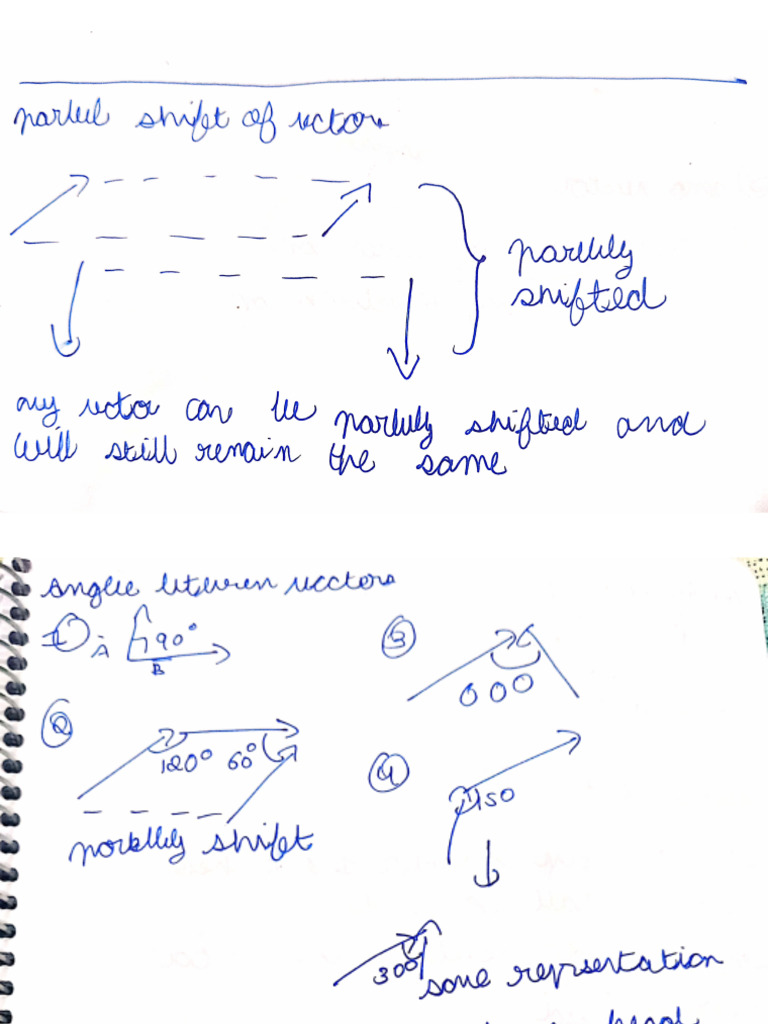 parllel shift of vector
parllely
shifted
any vector can be parllely shifted and
will still remain the same
Angle between vectors
1 A 90°
B
3
000
2
120° 60°
4
150
parallely shift
300
same represrtation
head